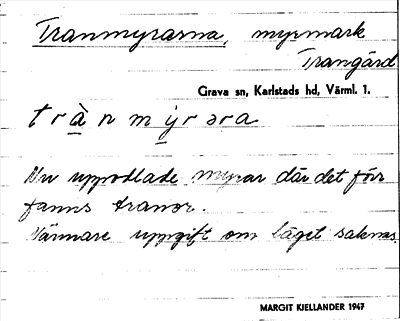 Tranmyrarna, myrmark
Trangärd
Grava sn, Karlstads hd, Värml. 1.
tràn mỳrəra
Nu uppodlade myrar där det förr
fanns tranor.
Närmare uppgift om läget saknas.
MARGIT KIELLANDER 1947